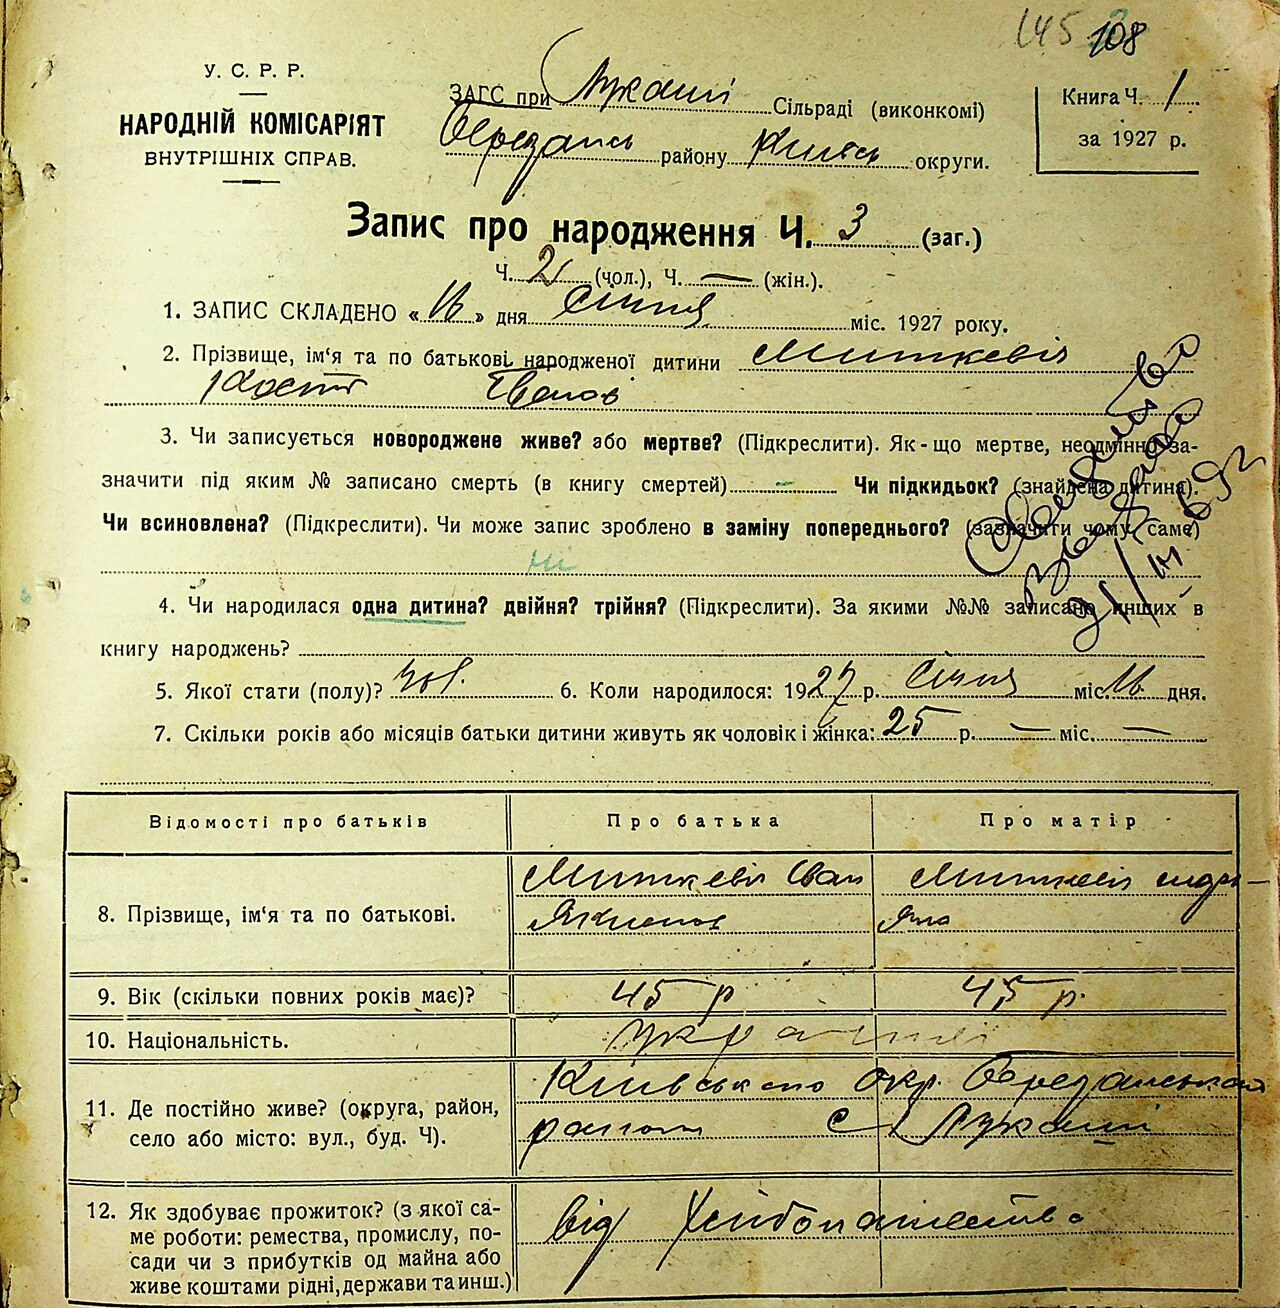 145 108
У. С. Р. Р.
НАРОДНІЙ КОМІСАРІЯТ
ВНУТРІШНІХ СПРАВ.
ЗАГС при Лукаші Сільраді (виконкомі)
Березансь району Київсь округи.
Книга Ч. 1
за 1927 р.
Запис про народження Ч. 3 (заг.)
Ч. 2 (чол.), Ч. — (жін.).
1. ЗАПИС СКЛАДЕНО «16» дня Січня міс. 1927 року.
2. Прізвище, ім‘я та по батькові народженої дитини Миткевіч
Кость Іванов
3. Чи записується новороджене живе? або мертве? (Підкреслити). Як-що мертве, неодмінно за-
значити під яким № записано смерть (в книгу смертей) – Чи підкидьок? (знайдена дитина).
Чи всиновлена? (Підкреслити). Чи може запис зроблено в заміну попереднього? (зазначити чому саме)
Ні
4. Чи народилася одна дитина? двійня? трійня? (Підкреслити). За якими №№ записано инших в
книгу народжень?
5. Якої стати (полу)? чол. 6. Коли народилося: 1927 р. Січня міс. 16 дня.
7. Скільки років або місяців батьки дитини живуть як чоловік і жінка: 25 р. — міс. —
Відомості про батьків Про батька Про матір
8. Прізвище, ім‘я та по батькові. Миткевіч Іван Миткевіч
9. Вік (скільки повних років має)? 45 р 45 р.
10. Національність. Українці
11. Де постійно живе? (округа, район,
село або місто: вул., буд. Ч). Київського Окр. Березанського
район С. Лукаші
12. Як здобуває прожиток? (з якої са-
ме роботи: ремества, промислу, по-
сади чи з прибутків од майна або
живе коштами рідні, держави та инш.) від Хлібопашества